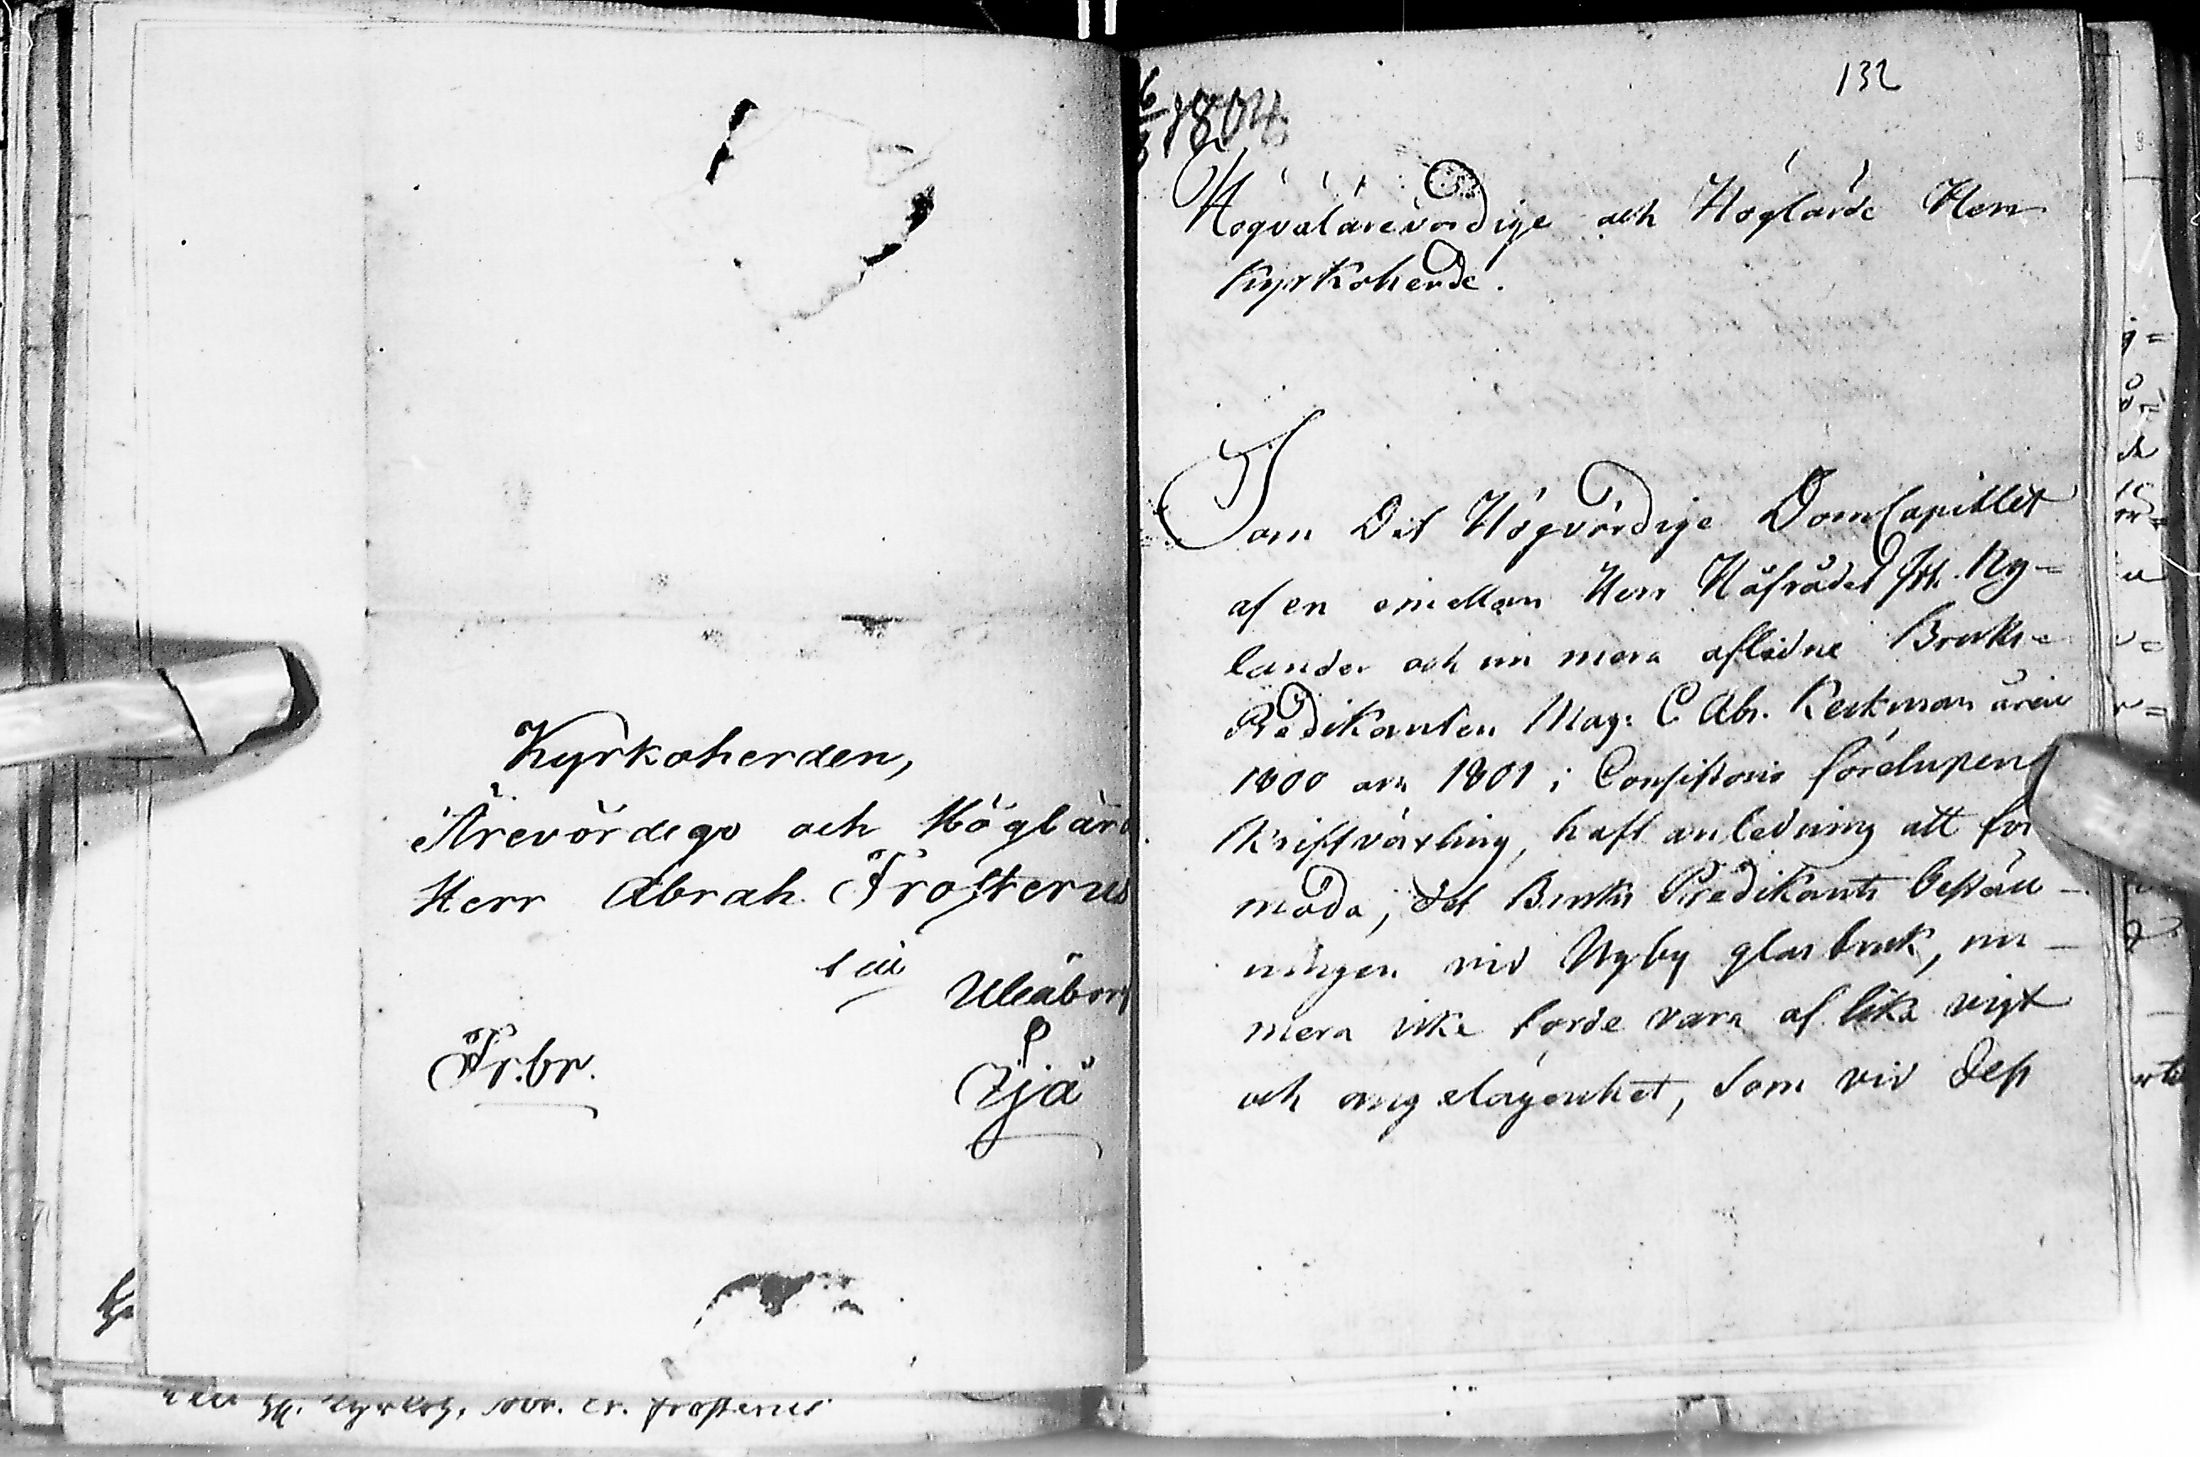 Kyrkoherden,
Ärevördige och Höglärd
Herr Abrah. Frosterus
till
Uleåborg
Fr.br.
Ijå
Kyrkoh. Frosterus
132
6/3 1804
Högvälärevördige och Höglärde Herr
Kyrkoherde.
Som Det Högvördige DomCapitlet
af en emellan Herr Håfrådet Joh. Ny=
lander och nu mera aflidne Bruks=
Predikanten Mag: C Abr. Keckman åren
1800 och 1801 i Consistorio förelupen
skriftväxling, haft anledning att för
moda, det Bruks Predikants beställ-
ningen vid Nyby glasbruk, nu-
mera icke torde vara af lika vigt
och angelägenhet, som vid dess